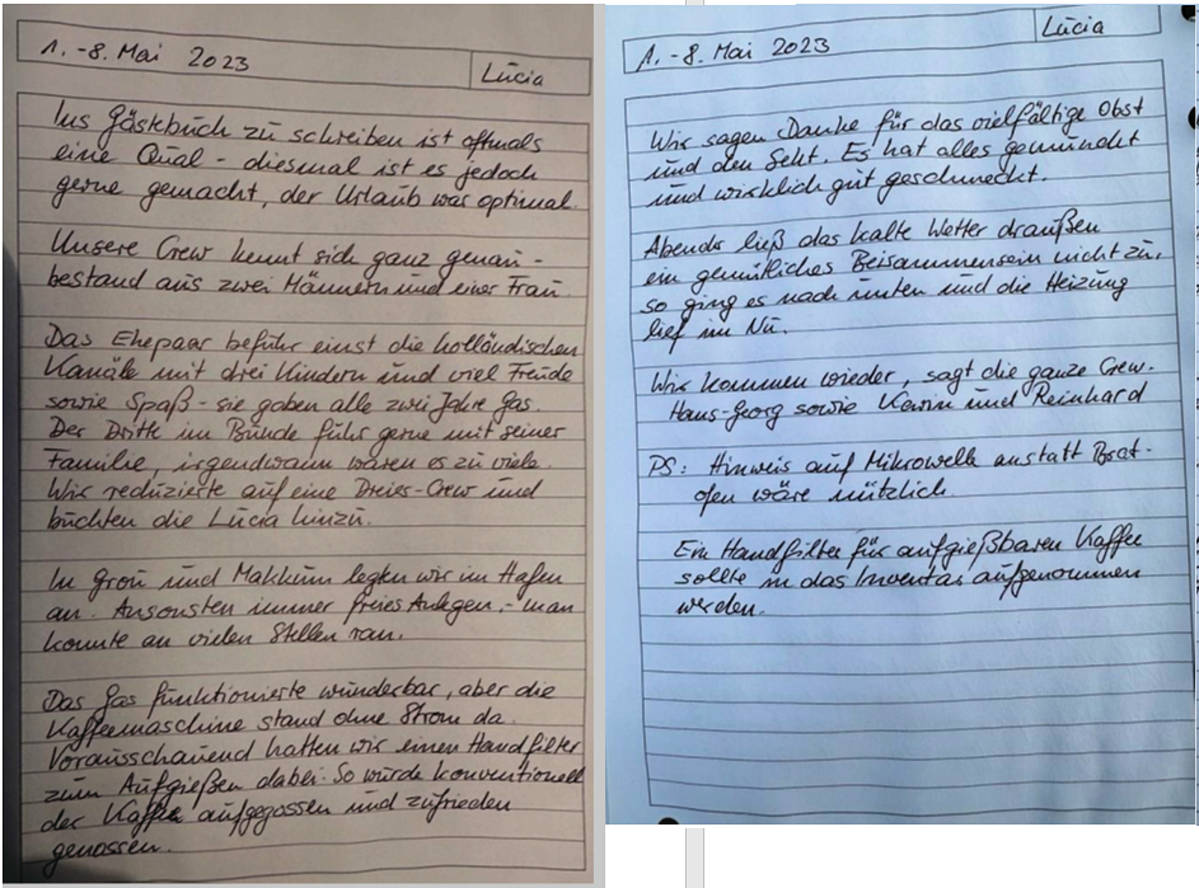 1. - 8. Mai 2023
Lucia
Ins Gästebuch zu schreiben ist oftmals
eine Qual - diesmal ist es jedoch
gerne gemacht, der Urlaub war optimal.
Unsere Crew kennt sich ganz genau -
bestand aus zwei Männern und einer Frau.
Das Ehepaar befuhr einst die holländischen
Kanäle mit drei Kindern und viel Freude
sowie Spaß - sie gaben alle zwei Jahre Gas.
Der Dritte im Bunde fuhr gerne mit seiner
Familie, irgendwann waren es zu viele.
Wir reduzierte auf eine Dreier-Crew und
buchten die Lucia hinzu.
In Grou und Makkum legten wir im Hafen
an. Ansonsten immer freies Anlegen, - man
konnte an vielen Stellen ran.
Das Gas funktionierte wunderbar, aber die
Kaffeemaschine stand ohne Strom da.
Vorausschauend hatten wir einen Handfilter
zum Aufgießen dabei. So wurde konventionell
der Kaffee aufgegossen und zufrieden
genossen.
1. - 8. Mai 2023
Lucia
Wir sagen Danke für das vielfältige Obst
und den Sekt. Es hat alles gemundet
und wirklich gut geschmeckt.
Abends ließ das kalte Wetter draußen
ein gemütliches Beisammensein nicht zu,
so ging es nach unten und die Heizung
lief im Nu.
Wir kommen wieder, sagt die ganze Crew.
Hans-Georg sowie Karin und Reinhard
PS: Hinweis auf Mikrowelle anstatt Brat-
ofen wäre nützlich.
Ein Handfilter für aufgießbaren Kaffee
sollte in das Inventar aufgenommen
werden.